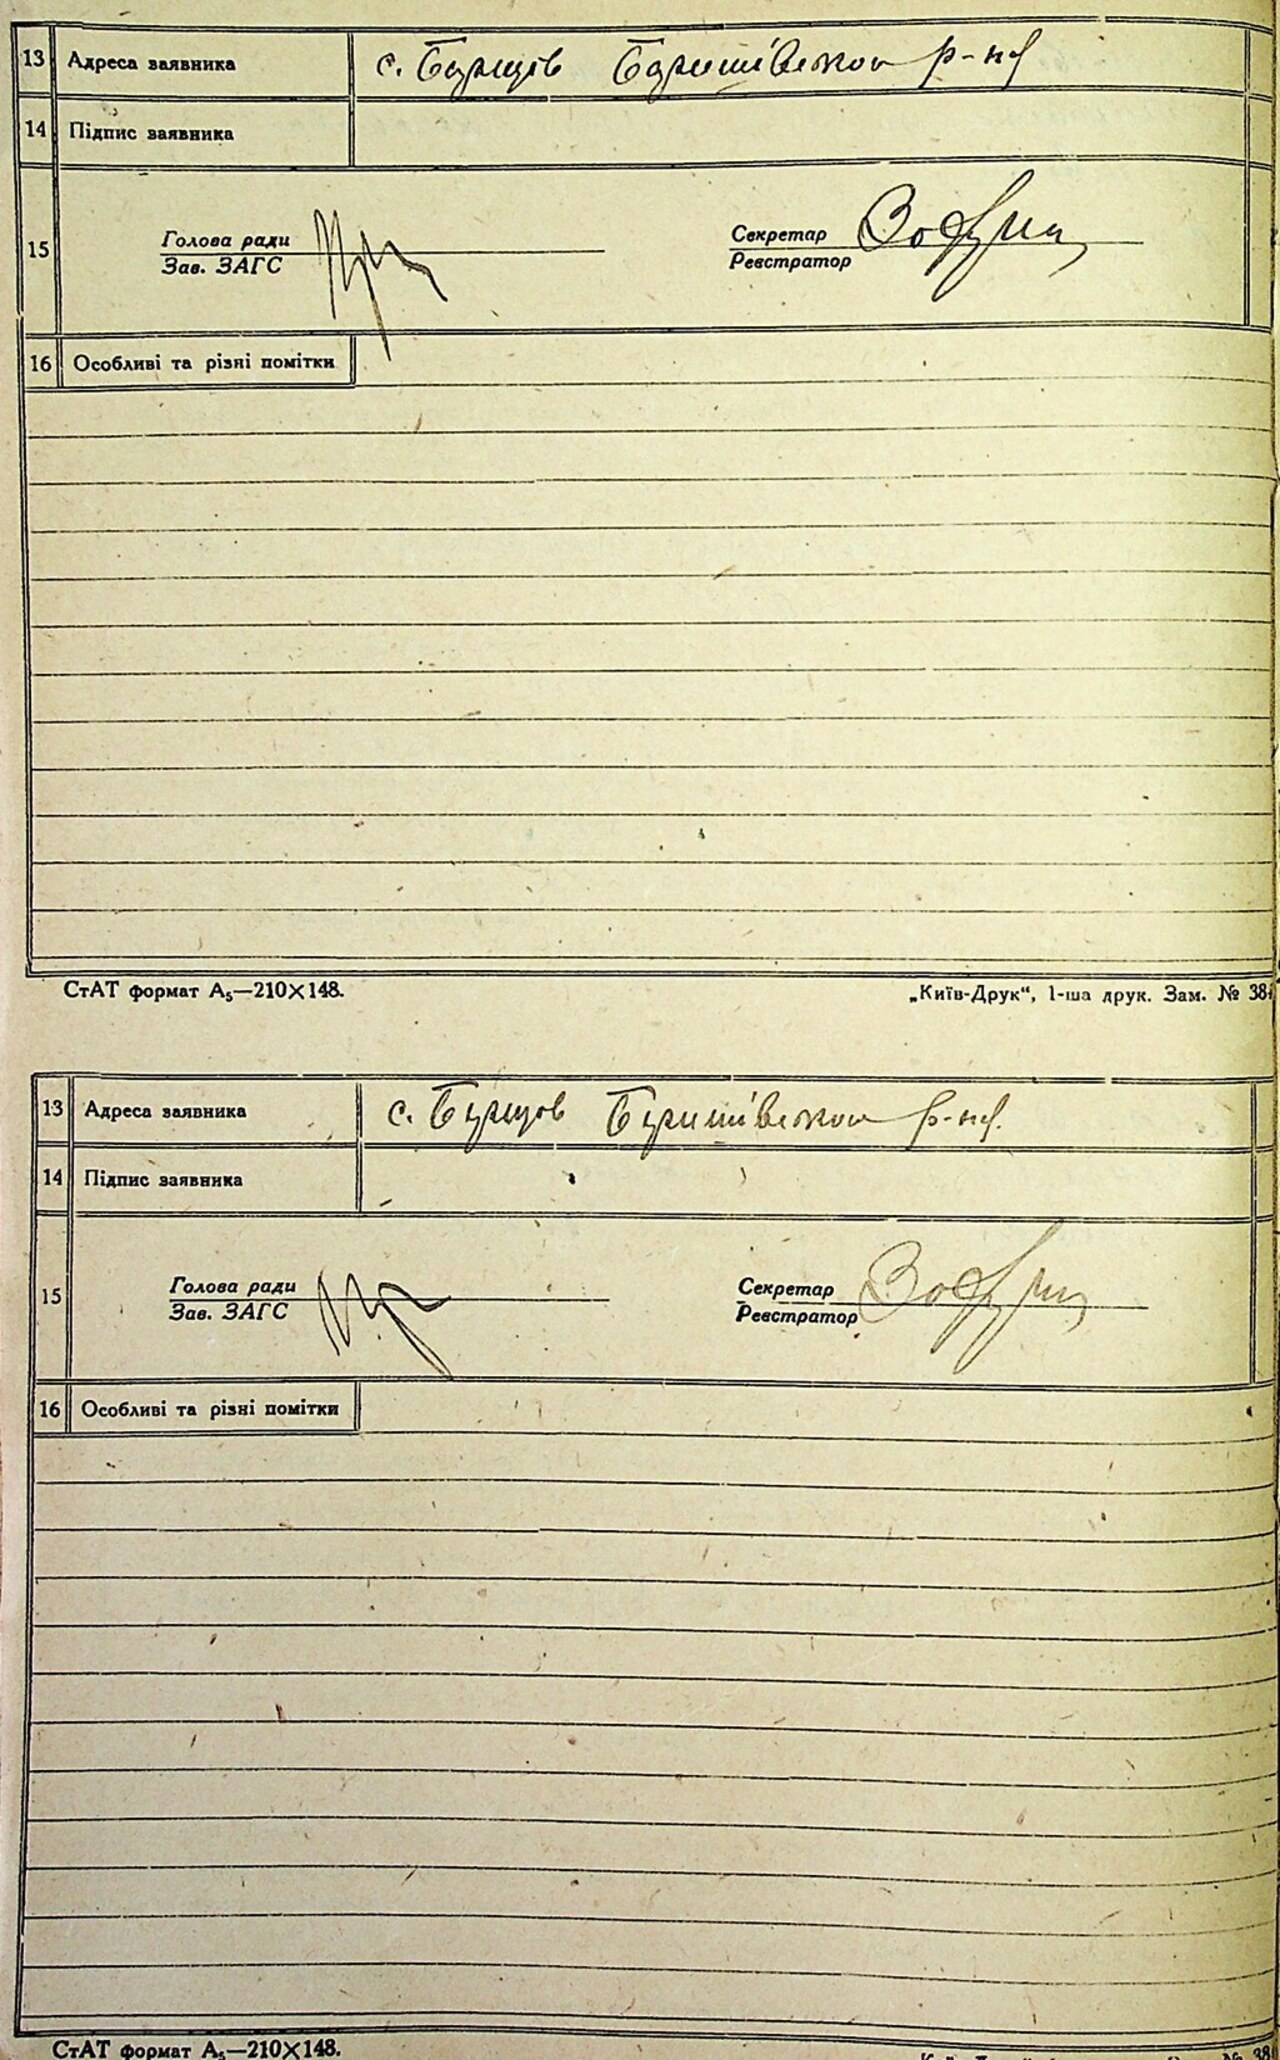 13 Адреса заявника с. Борщов Баришівського р-ну
14 Підпис заявника
15 Голова ради Секретар
Зав. ЗАГС Реєстратор
16 Особливі та різні помітки
СтАТ формат А₅—210×148. „Київ-Друк“, 1-ша друк. Зам. № 38
13 Адреса заявника с. Борщов Баришівського р-ну.
14 Підпис заявника
15 Голова ради Секретар
Зав. ЗАГС Реєстратор
16 Особливі та різні помітки
СтАТ формат А₅—210×148. № 38